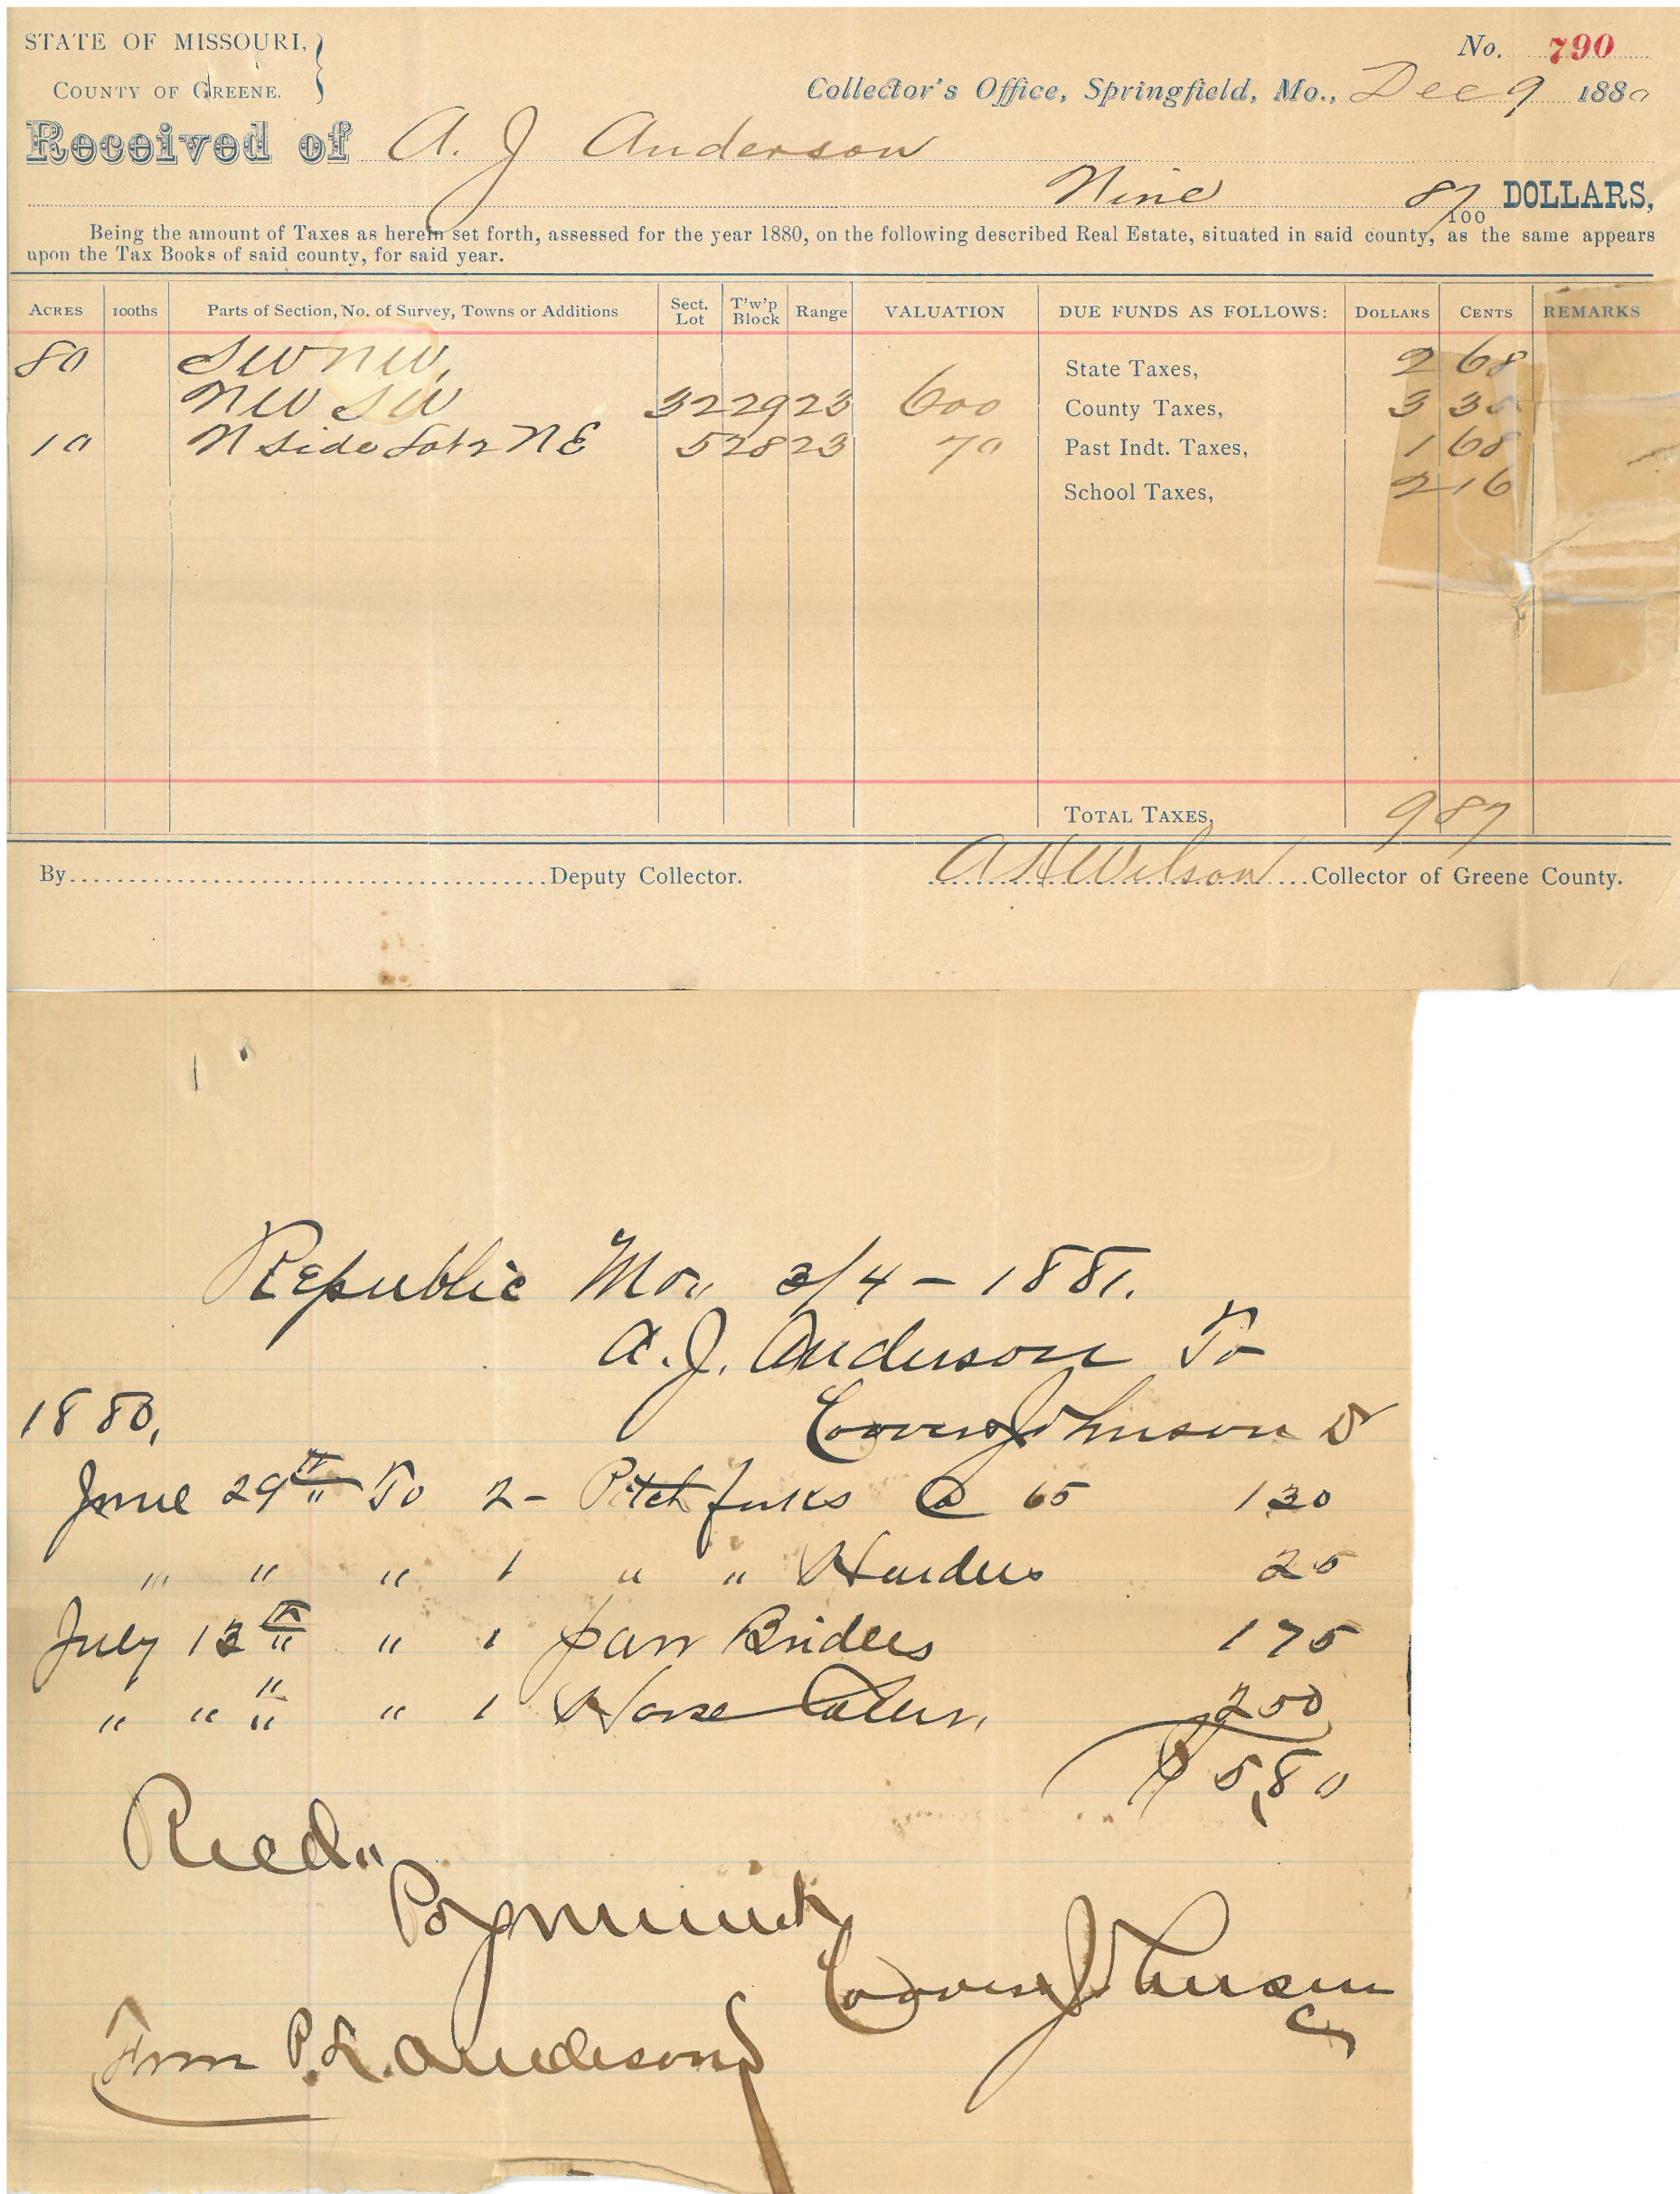 STATE OF MISSOURI,
COUNTY OF GREENE.
No. 790
Collector's Office, Springfield, Mo., Dec 9 1880
Received of A. J Anderson
Nine 87/100 DOLLARS,
Being the amount of Taxes as herein set forth, assessed for the year 1880, on the following described Real Estate, situated in said county, as the same appears
upon the Tax Books of said county, for said year.
ACRES 100ths Parts of Section, No. of Survey, Towns or Additions Sect. Lot T'w'p Block Range VALUATION DUE FUNDS AS FOLLOWS: DOLLARS CENTS REMARKS
80 SW NW, State Taxes, 2 68
NW SW 32 29 23 600 County Taxes, 3 35
10 N side Lot 2 NE 5 28 23 70 Past Indt. Taxes, 1 68
School Taxes, 2 16
TOTAL TAXES, 9 87
By Deputy Collector. A H Wilson Collector of Greene County.
Republic Mo,, 3/4 - 1881.
A. J. Anderson To
1880, Johnson Dr
June 29th To 2 - Pitch forks @ 65 1 30
" " " 1 " " 25
July 13th " 1 pair Bridles 1 75
" " " " 1 Horse Collar, 2 50
$ 5,80
Recd,,
Payment
Johnson
From P. L. Anderson